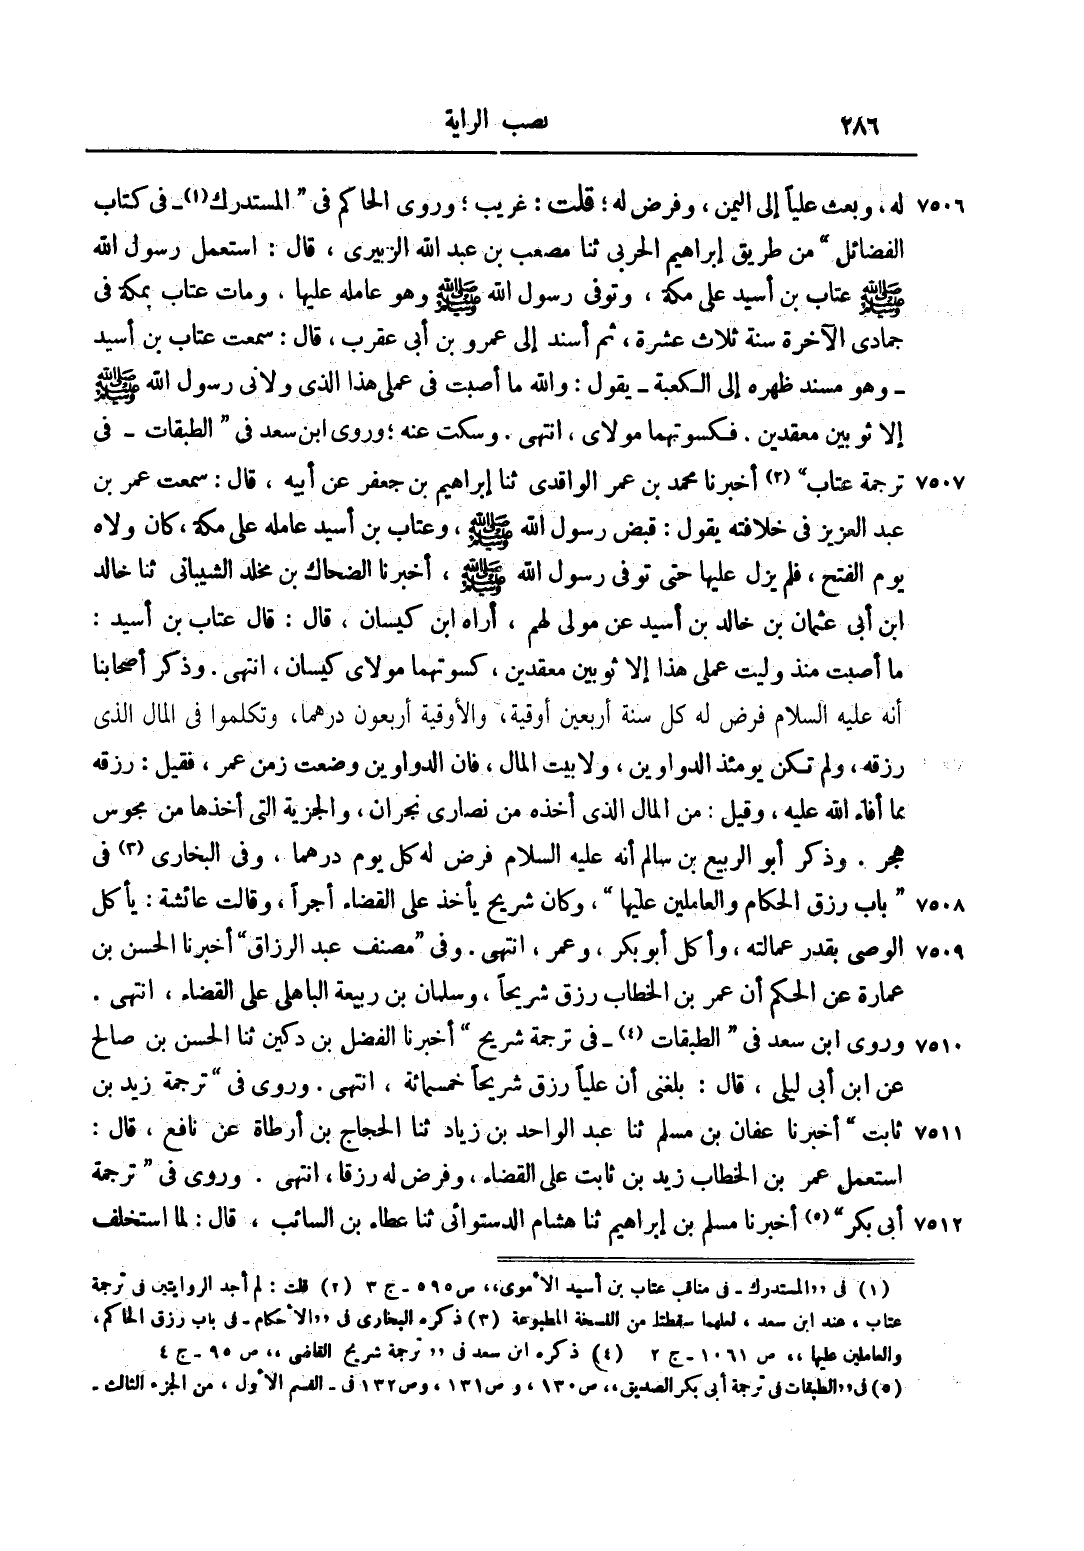 ٢٨٦ نصب الراية
٧٥٠٦ له، وبعث علياً إلى اليمن، وفرض له؛ قلت: غريب؛ وروى الحاكم فى "المستدرك(١) ـ فى كتاب
الفضائل" من طريق إبراهيم الحربى ثنا مصعب بن عبد الله الزبيرى، قال: استعمل رسول الله
ﷺ عتاب بن أسيد على مكة، وتوفى رسول الله ﷺ وهو عامله عليها، ومات عتاب بمكة فى
جمادى الآخرة سنة ثلاث عشرة، ثم أسند إلى عمرو بن أبى عقرب، قال: سمعت عتاب بن أسيد
ـ وهو مسند ظهره إلى الكعبة ـ يقول: والله ما أصبت فى عملى هذا الذى ولانى رسول الله ﷺ
إلا ثوبين معقدين. فكسوتهما مولاى، انتهى. وسكت عنه؛ وروى ابن سعد فى "الطبقات ـ فى
٧٥٠٧ ترجمة عتاب" (٢) أخبرنا محمد بن عمر الواقدى ثنا إبراهيم بن جعفر عن أبيه، قال: سمعت عمر بن
عبد العزيز فى خلافته يقول: قبض رسول الله ﷺ، وعتاب بن أسيد عامله على مكة، كان ولاه
يوم الفتح، فلم يزل عليها حتى توفى رسول الله ﷺ، أخبرنا الضحاك بن مخلد الشيبانى ثنا خالد
ابن أبى عثمان بن خالد بن أسيد عن مولى لهم، أراه ابن كيسان، قال: قال عتاب بن أسيد:
ما أصبت منذ وليت عملى هذا إلا ثوبين معقدين، كسوتهما مولاى كيسان، انتهى. وذكر أصحابنا
أنه عليه السلام فرض له كل سنة أربعين أوقية، والأوقية أربعون درهما، وتكلموا فى المال الذى
رزقه، ولم تكن يومئذ الدواوين، ولا بيت المال، فان الدواوين وضعت زمن عمر، فقيل: رزقه
بما أفاء الله عليه، وقيل: من المال الذى أخذه من نصارى نجران، والجزية التى أخذها من مجوس
هجر. وذكر أبو الربيع بن سالم أنه عليه السلام فرض له كل يوم درهما، وفى البخارى (٣) فى
٧٥٠٨ "باب رزق الحكام والعاملين عليها"، وكان شريح يأخذ على القضاء أجراً، وقالت عائشة: يأكل
٧٥٠٩ الوصى بقدر عمالته، وأكل أبو بكر، وعمر، انتهى. وفى "مصنف عبد الرزاق" أخبرنا الحسن بن
عمارة عن الحكم أن عمر بن الخطاب رزق شريحاً، وسلمان بن ربيعة الباهلى على القضاء، انتهى.
٧٥١٠ وروى ابن سعد فى "الطبقات (٤) ـ فى ترجمة شريح" أخبرنا الفضل بن دكين ثنا الحسن بن صالح
عن ابن أبى ليلى، قال: بلغنى أن علياً رزق شريحاً خمسمائة، انتهى. وروى فى "ترجمة زيد بن
٧٥١١ ثابت" أخبرنا عفان بن مسلم ثنا عبد الواحد بن زياد ثنا الحجاج بن أرطاة عن نافع، قال:
استعمل عمر بن الخطاب زيد بن ثابت على القضاء، وفرض له رزقا، انتهى. وروى فى "ترجمة
٧٥١٢ أبى بكر" (٥) أخبرنا مسلم بن إبراهيم ثنا هشام الدستوائى ثنا عطاء بن السائب، قال: لما استخلف
(١) فى ,,المستدرك ـ فى مناقب عتاب بن أسيد الأموى،، ص ٥٩٥ ـ ج ٣ (٢) قلت: لم أجد الروايتين فى ترجمة
عتاب، عند ابن سعد، لعلهما سقطتا من النسخة المطبوعة (٣) ذكره البخارى فى ,,الأحكام ـ فى باب رزق الحاكم،
والعاملين عليها،، ص ١٠٦١ ـ ج ٢ (٤) ذكره ابن سعد فى ,,ترجمة شريح القاضى،، ص ٩٥ ـ ج ٤
(٥) فى ,,الطبقات فى ترجمة أبى بكر الصديق،، ص ١٣٠، و ص ١٣١، وص ١٣٢ فى ـ القسم الأول، من الجزء الثالث ـ